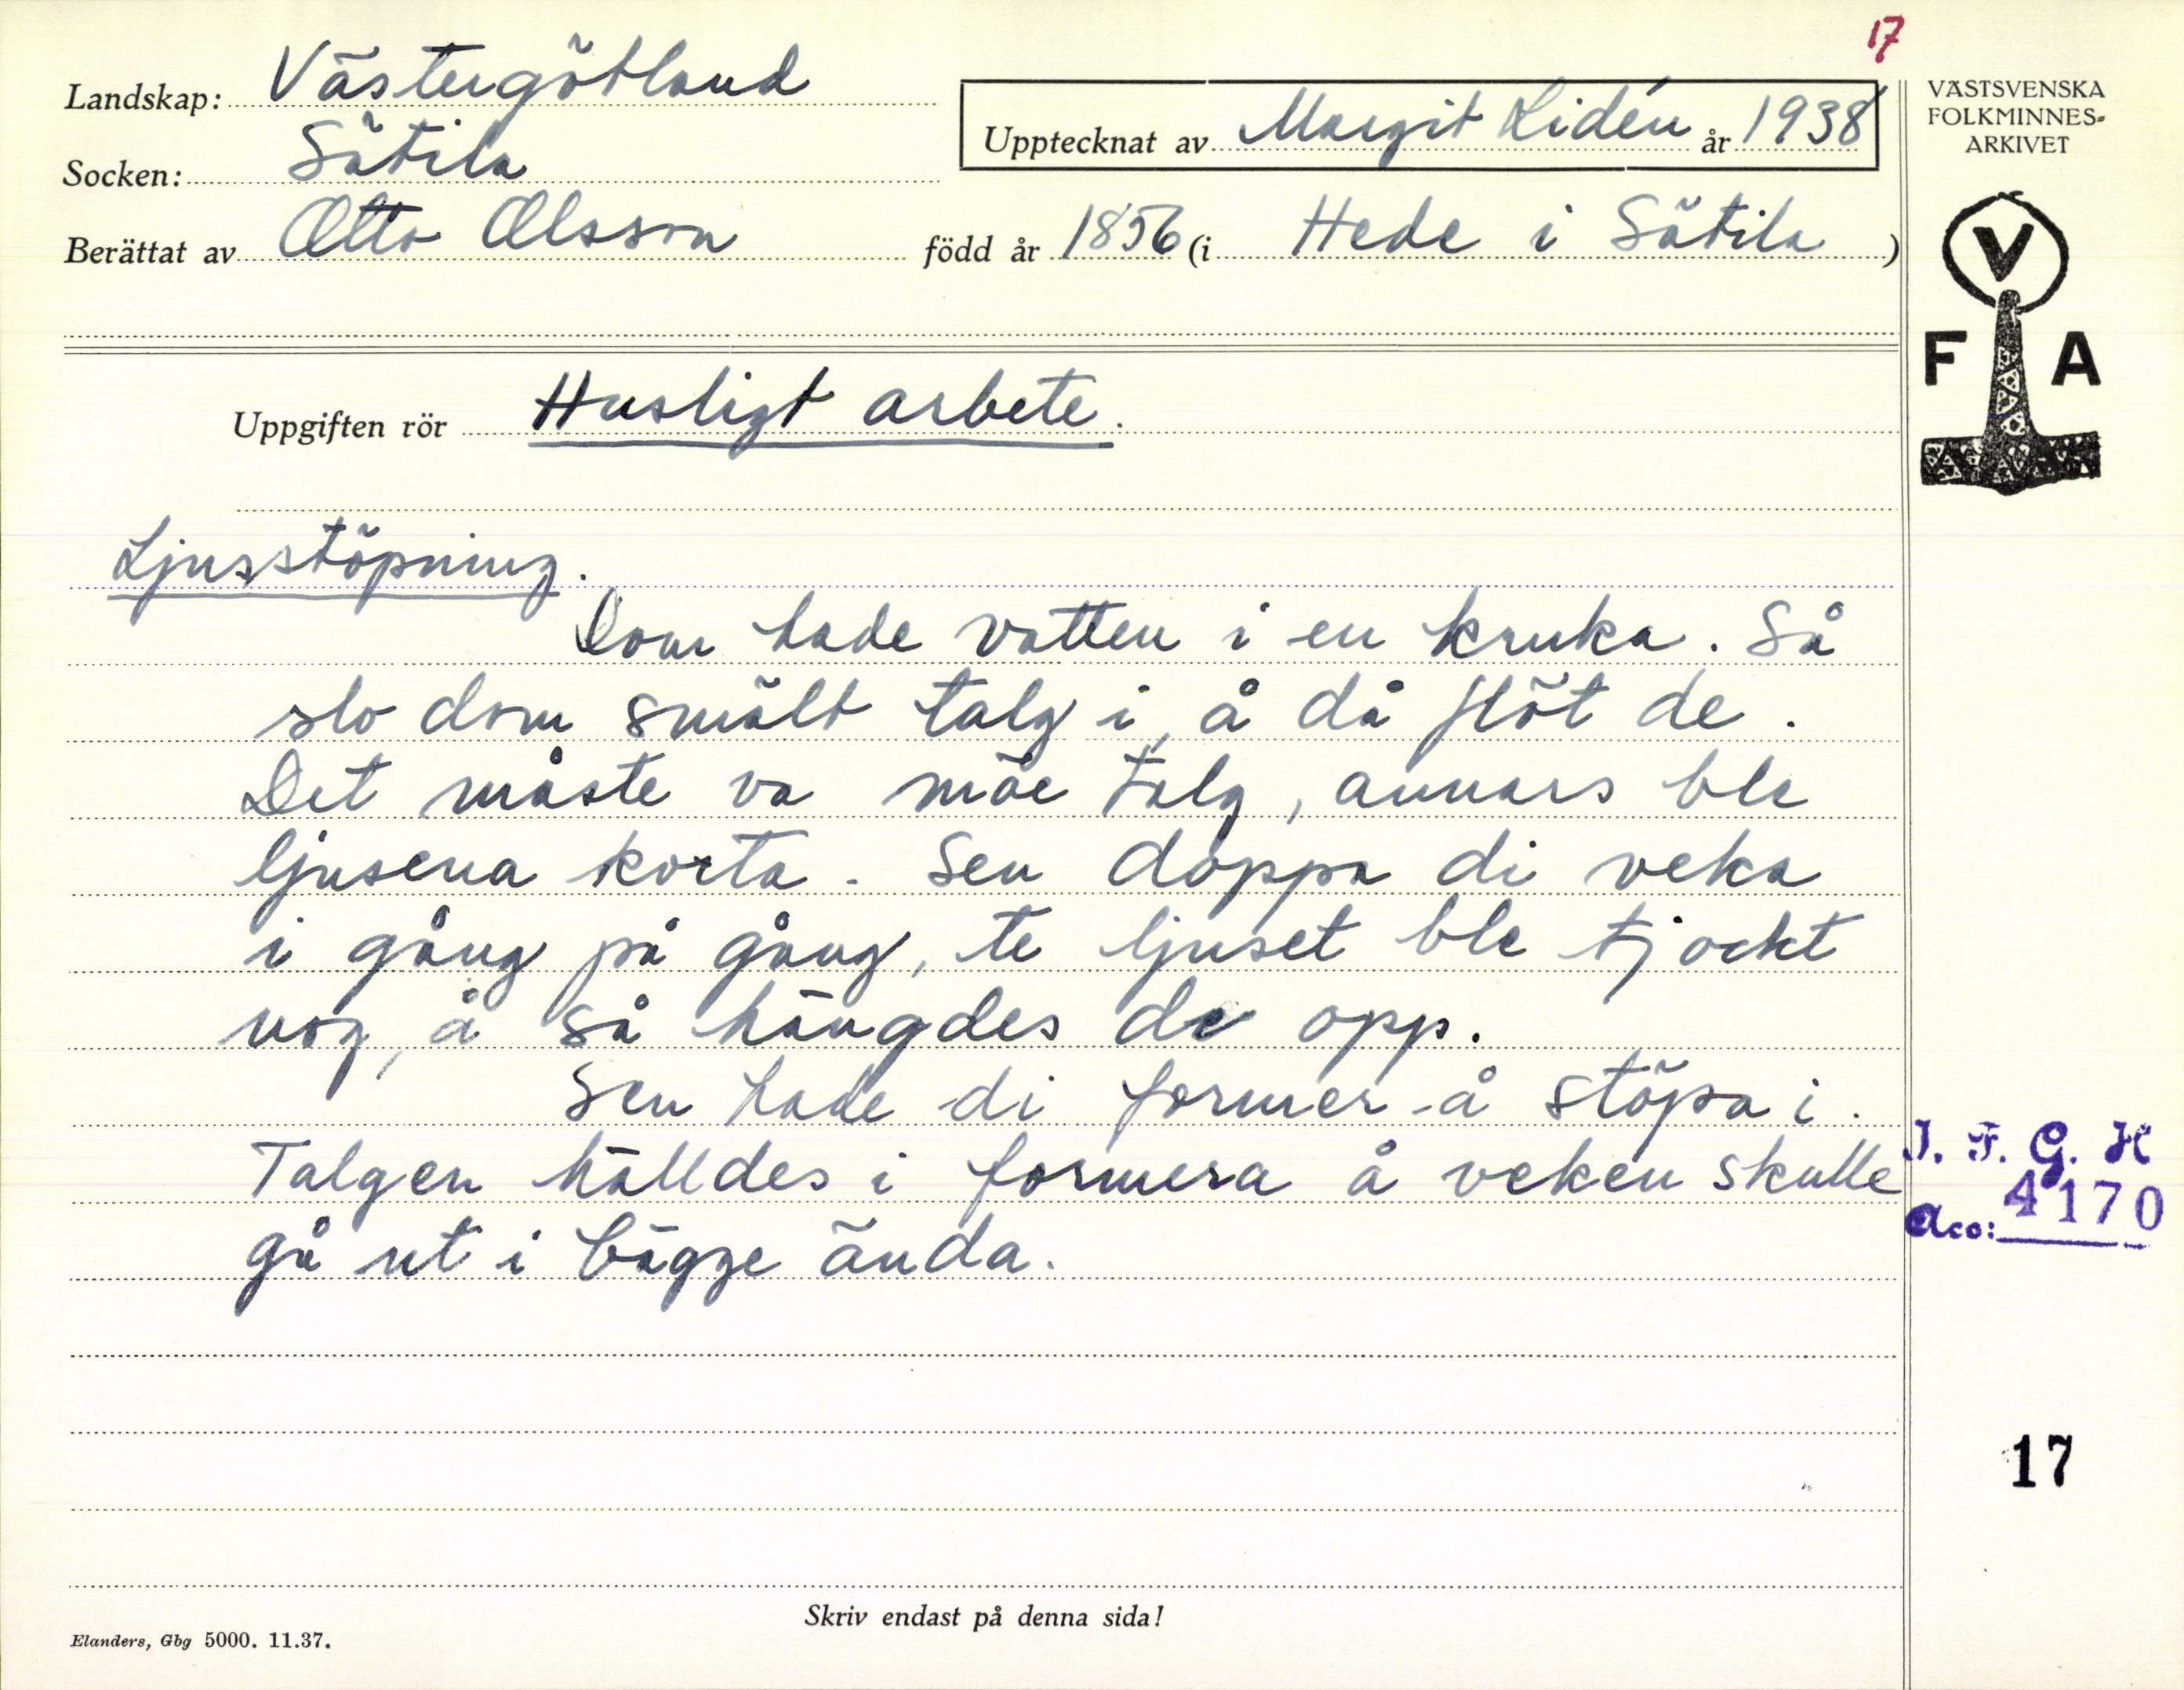 17
Landskap: Västergötland
Socken: Sätila
Berättat av Otto Olsson född år 1856 (i Hede i Sätila )
Upptecknat av Margit Lidén år 1938
VÄSTSVENSKA
FOLKMINNES-
ARKIVET
V
F A
Uppgiften rör Husligt arbete.
Ljusstöpning.
Dom hade vatten i en kruka. Så
slo dom smält talg i, å då flöt de.
Det måste va möe talg, annars ble
ljusena korta. Sen doppa di veka
i gång på gång, te ljuset ble tjockt
nog, å så hängdes de opp.
Sen hade di former å stöpa i.
Talgen hälldes i formera å veken skulle
gå ut i bägge ända.
I. F. G. H
Acc: 4170
17
Skriv endast på denna sida!
Elanders, Gbg 5000. 11.37.